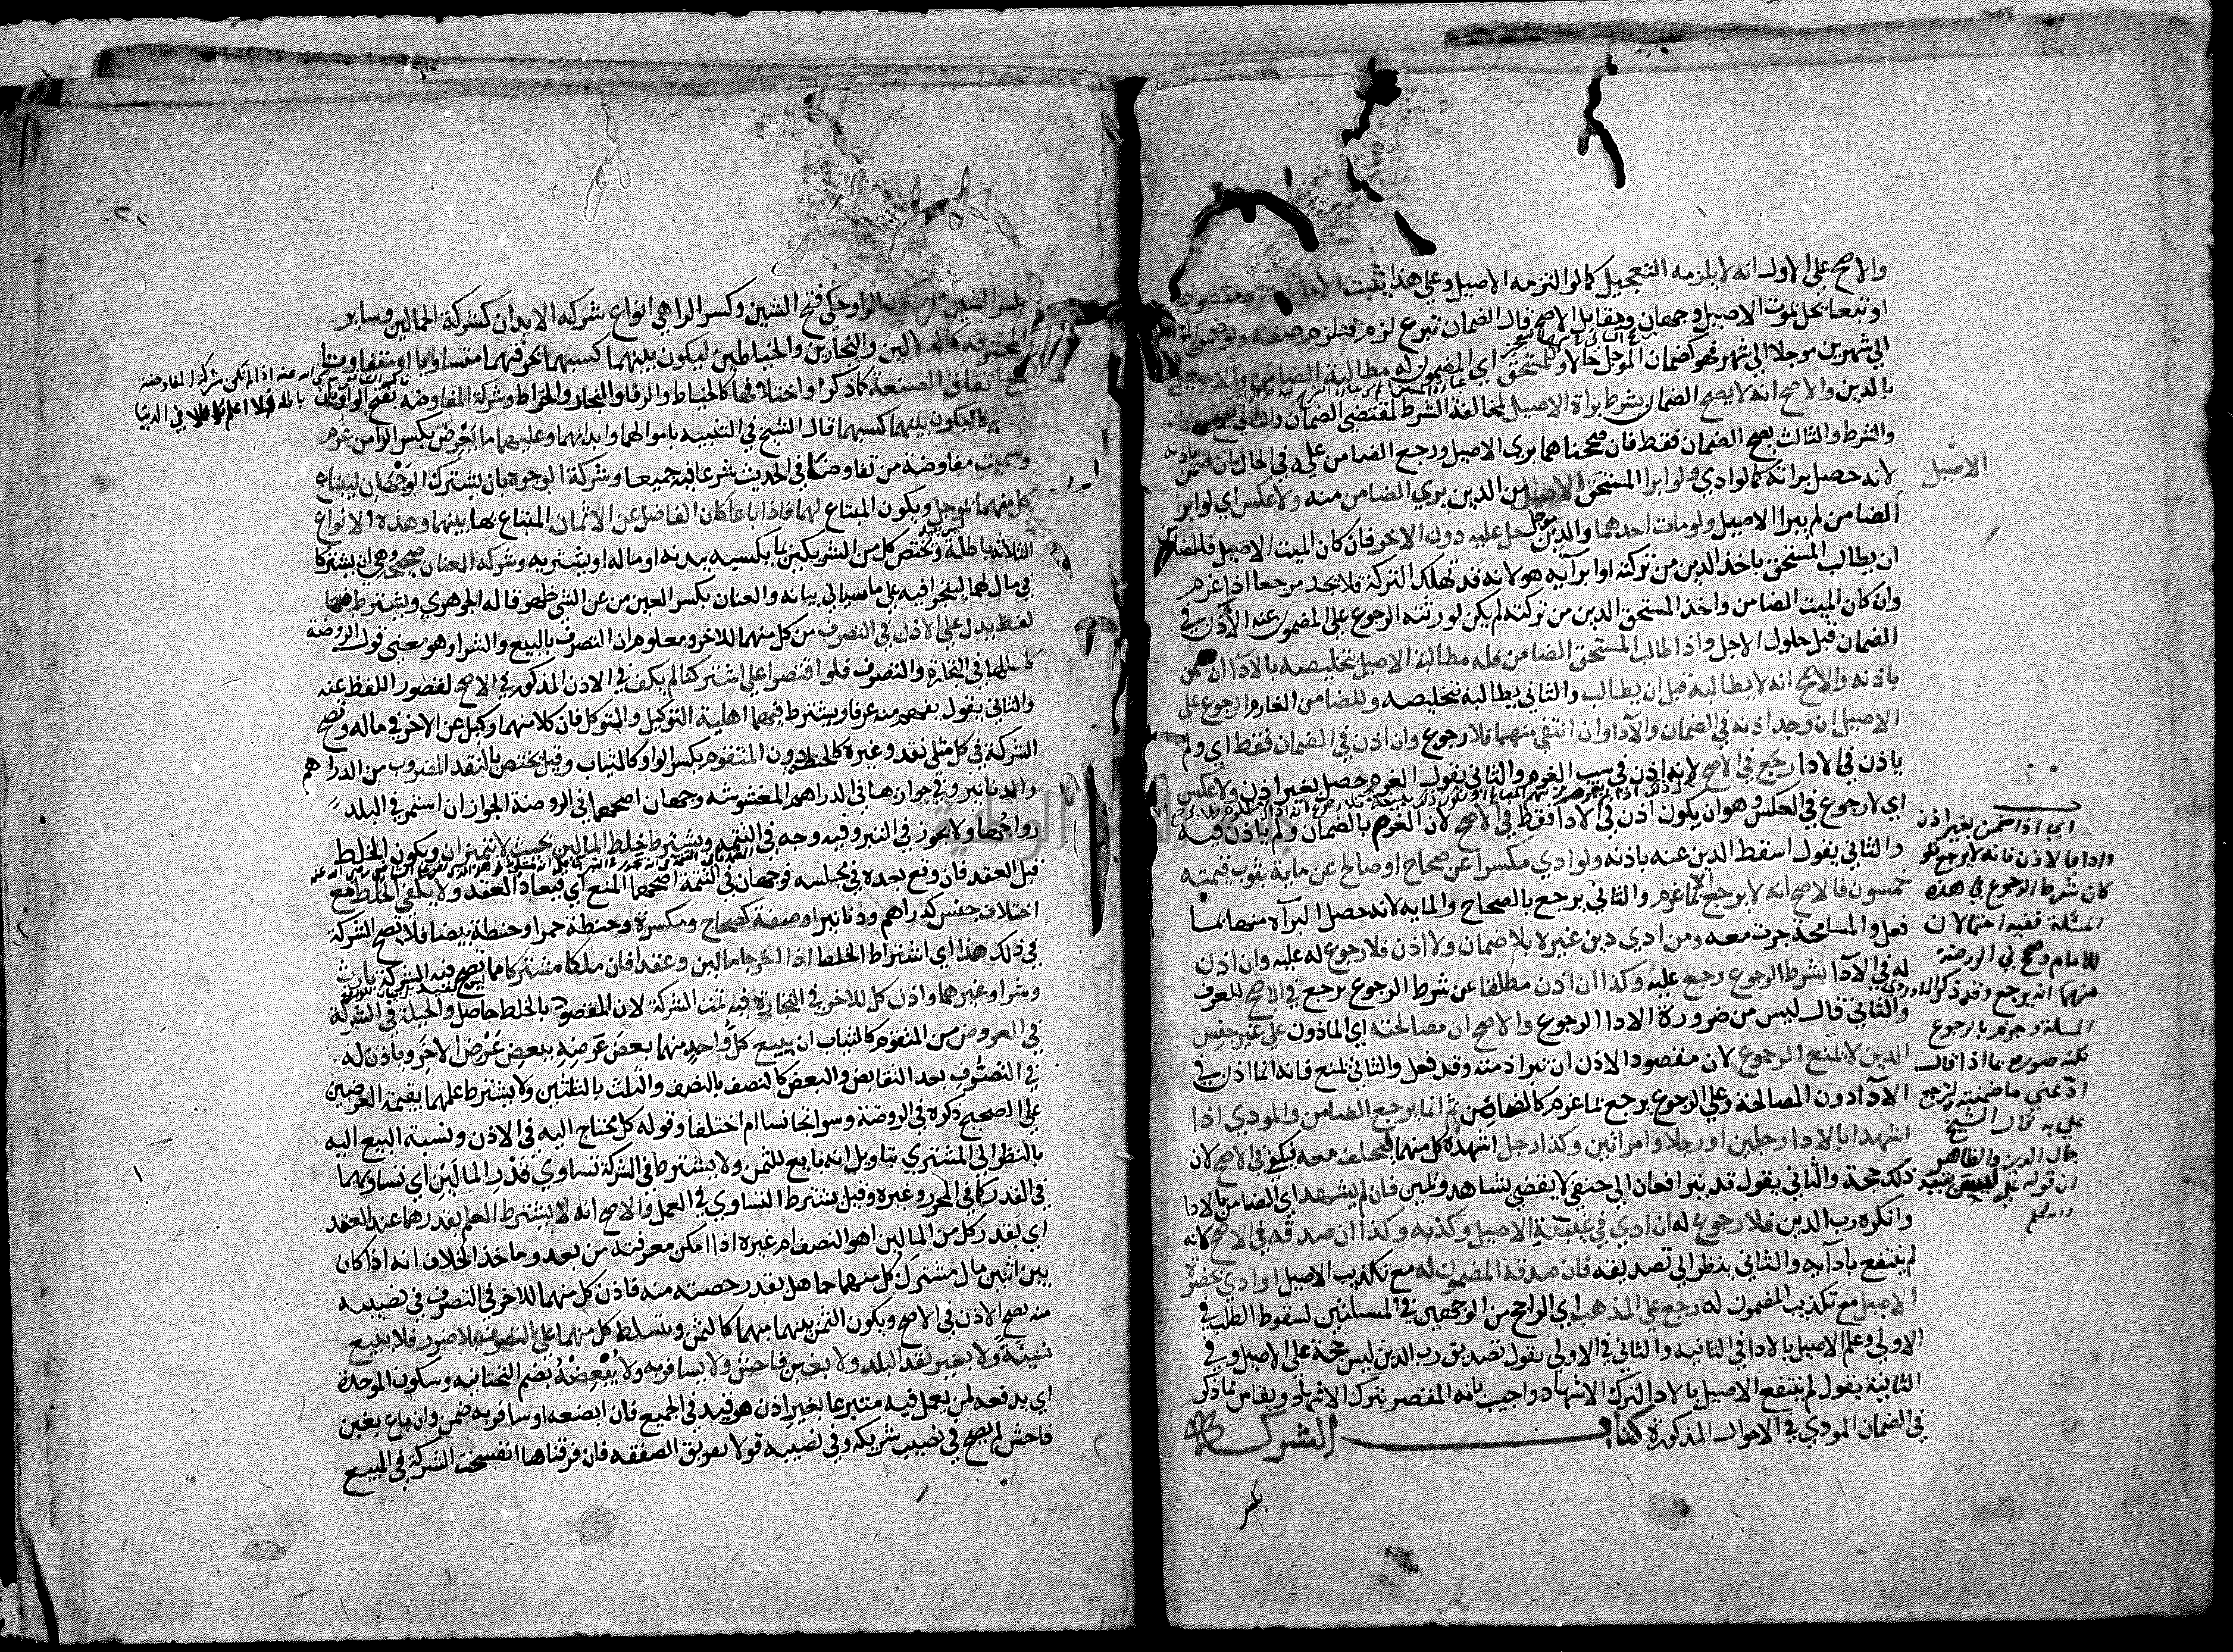 والاصح على الاول انه لا يلزمه التعجيل كما لو التزمه الاصيل وعلى هذا يثبت الاجل مقصودا
او تبعا يحل بموت الاصيل وجهان ومقابل الاصح قال الضمان تبرع لزم فتلزم صفته ولو ضمن المؤجل
الى شهرين مؤجلا الى شهر فهو كضمان المؤجل حالا وللمستحق اي المضمون له مطالبة الضامن والاصيل
بالدين والاصح انه لا يصح الضمان بشرط براة الاصيل لمخالفة الشرط لمقتضى الضمان والثاني يصح الضمان
والشرط والثالث يصح الضمان فقط فان صححناهما بري الاصيل ورجع الضامن عليه في الحال ان ضمن باذنه
لانه حصل براته كما لو ادي ولو ابرا المستحق الاصيل من الدين بري الضامن منه ولا عكس اي لو ابرا
الضامن لم يبرا الاصيل ولو مات احدهما والدين مؤجل حل عليه دون الاخر فان كان الميت الاصيل فللضامن
ان يطالب المستحق باخذ الدين من تركته او ابرآيه هو لانه قد تهلك التركة فلا يجد مرجعا اذا غرم
وان كان الميت الضامن واخذ المستحق الدين من تركته لم يكن لورثته الرجوع على المضمون عنه الآذن في
الضمان قبل حلول الاجل واذا طالب المستحق الضامن فله مطالبة الاصيل بتخليصه بالادآ ان ضمن
باذنه والاصح انه لا يطالبه قبل ان يطالب والثاني يطالبه بتخليصه وللضامن الغارم الرجوع على
الاصيل ان وجد اذنه في الضمان والآدا وان انتفى منهما فلا رجوع وان اذن في الضمان فقط اي ولم
ياذن في الادا رجع في الاصح لانه اذن في سبب الغرم والثاني يقول الغرم حصل بغير اذن ولا عكس
اي لا رجوع في العكس وهو ان يكون اذن في الادا فقط في الاصح لان الغرم بالضمان ولم ياذن فيه
والثاني يقول اسقط الدين عنه باذنه ولو ادي مكسرا عن صحاح او صالح عن ماية بثوب قيمته
خمسون فالاصح انه لا يرجع الا بما غرم والثاني يرجع بالصحاح والمايه لانه حصل البرآه منها بما
فعل والمسامحة جرت معه ومن ادي دين غيره بلا ضمان ولا اذن فلا رجوع له عليه وان اذن
له في الآدا بشرط الرجوع رجع عليه وكذا ان اذن مطلقا عن شرط الرجوع يرجع في الاصح للعرف
والثاني قال ليس من ضرورة الادا الرجوع والاصح ان مصالحته اي الماذون على غير جنس
الدين لا تمنع الرجوع لان مقصود الاذن ان تبرا ذمته وقد فعل والثاني تمنع فانه انما اذن في
الآدا دون المصالحة وعلى الرجوع يرجع بما غرم كالضامن ثم انما يرجع الضامن والمودي اذا
اشهدا بالادا رجلين او رجلا وامراتين وكذا رجل اشهده كل منهما ليحلف معه فيكفي في الاصح لان
ذلك حجة والثاني يقول قد يترافعان الى حنفي لا يقضي بشاهد ويمين فان لم يشهد اي الضامن بالادا
وانكره رب الدين فلا رجوع له ان ادي في غيبة الاصيل وكذبه وكذا ان صدقه في الاصح لانه
لم ينتفع بادآيه والثاني ينظر الى تصديقه فان صدقه المضمون له مع تكذيب الاصيل او ادي بحضرة
الاصيل مع تكذيب المضمون له رجع على المذهب اي الراجح من الوجهين في المسلتين لسقوط الطلب في
الاولى وعلم الاصيل بالادا في الثانيه والثاني في الاولى يقول تصديق رب الدين ليس حجة على الاصيل وفي
الثانية يقول لم ينتفع الاصيل بالادا لترك الاشهاد واجيب بانه المقصر بترك الاشهاد ويقاس بما ذكر
في الضمان المودي في الاحوال المذكورة كتاب الشركة
بكسر
الاصيل
اي اذا ضمن بغير اذن
وادا بالاذن فانه لا يرجع فلو
كان شرط الرجوع في هذه
المسئلة ففيه احتمالان
للامام وصحح في الروضة
منهما انه يرجع وقد ذكر الماوردي
المسئلة وجزم بالرجوع
لكنه صورها بما اذا قال
ادّ عني ما ضمنته لترجع
علي به قال الشيخ
جمال الدين والظاهر
ان قوله
بكسر الشين وسكون الرا وحكي فتح الشين وكسر الرا هي انواع شركة الابدان كشركة الحمالين وساير
المحترفة كالدلالين والنجارين والخياطين ليكون بينهما كسبهما بحرفتهما متساويا او متفاوتا
مع اتفاق الصنعة كما ذكر او اختلافها كالخياط والرفا والنجار والخراط وشركة المفاوضة بفتح الواو
ليكون بينهما كسبهما قال الشيخ في التنبيه باموالهما وابدانهما وعليهما ما يعرض بكسر الرا من غرم
وسميت مفاوضة من تفاوضا في الحديث شرعا فيه جميعا وشركة الوجوه بان يشترك الوجيهان ليبتاع
كل منهما بمؤجل ويكون المبتاع لهما فاذا باعا كان الفاضل عن الاثمان المبتاع بها بينهما وهذه الانواع
الثلاثة باطلة ويختص كل من الشريكين بما يكسبه ببدنه او ماله او يشتريه وشركه العنان صحيحة وهي ان يشتركا
في مال لهما ليتجرا فيه على ما سياتي بيانه والعنان بكسر العين من عن الشي ظهر قاله الجوهري ويشترط فيها
لفظ يدل على الاذن في التصرف من كل منهما للاخر ومعلوم ان التصرف بالبيع والشرا وهو معنى قول الروضة
كاصلها في التجارة والتصرف فلو اقتصرا على اشتركنا لم يكف في الاذن المذكور في الاصح لقصور اللفظ عنه
والثاني يقول يفهم منه عرفا ويشترط فيهما اهلية التوكيل والتوكل فان كلا منهما وكيل عن الاخر في ماله وتصح
الشركة في كل مثلي نقد وغيره كالحنطة دون المتقوم بكسر الواو كالثياب وقيل يختص بالنقد المضروب من الدراهم
والدنانير وفي جوازها في الدراهم المغشوشه وجهان اصحهما في الروضة الجواز ان استمر في البلد
رواجها ولا يجوز في التبر وفيه وجه في التتمة ويشترط خلط المالين بحيث لا يتميزان ويكون الخلط
قبل العقد فان وقع بعده في مجلسه فوجهان في التتمة اصحهما المنع اي فيعاد العقد ولا يكفي الخلط مع
اختلاف جنس كدراهم ودنانير او صفة كصحاح ومكسرة وحنطة حمرا وحنطة بيضا فلا تصح الشركة
في ذلك هذا اي اشتراط الخلط اذا اخرجا مالين وعقدا فان ملكا مشتركا مما تصح فيه الشركة بارث
وشرا وغيرهما واذن كل للاخر في التجارة فيه تمت الشركة لان المقصود بالخلط حاصل والحيلة في الشركة
في العروض من المتقوم كالثياب ان يبيع كل واحد منهما بعض عرضه ببعض عرض الاخر وياذن له
في التصرف بعد التقابض والبعض كالنصف بالنصف والثلث بالثلثين ولا يشترط علمهما بقيمة العرضين
على الصحيح ذكره في الروضة وسوا تجانسا ام اختلفا وقوله كل محتاج اليه في الاذن ونسبة البيع اليه
بالنظر الى المشتري بتاويل انه بايع للثمن ولا يشترط في الشركة تساوي قدر المالين اي تساويهما
في القدر كما في المحرر وغيره وقيل يشترط التساوي في العمل والاصح انه لا يشترط العلم بقدرهما عند العقد
اي بقدر كل من المالين اهو النصف ام غيره اذا امكن معرفته من بعد وماخذ الخلاف انه اذا كان
بين اثنين مال مشترك كل منهما جاهل بقدر حصته منه فاذن كل منهما للاخر في التصرف في نصيبه
منه يصح الاذن في الاصح ويكون الثمن بينهما مبهما كالمثمن ويتسلط كل منهما على التصرف بلا ضرر فلا يبيع
نسيئة ولا بغير نقد البلد ولا بغبن فاحش ولا يسافر به ولا يبعضه بضم التحتانيه وسكون الموحدة
اي يدفعه لمن يعمل فيه متبرعا بغير اذن هو قيد في الجميع فان ابضعه او سافر به ضمن وان باع بغبن
فاحش لم يصح في نصيب شريكه وفي نصيبه قولا تفريق الصفقه فان فرقناها انفسخت الشركة في المبيع